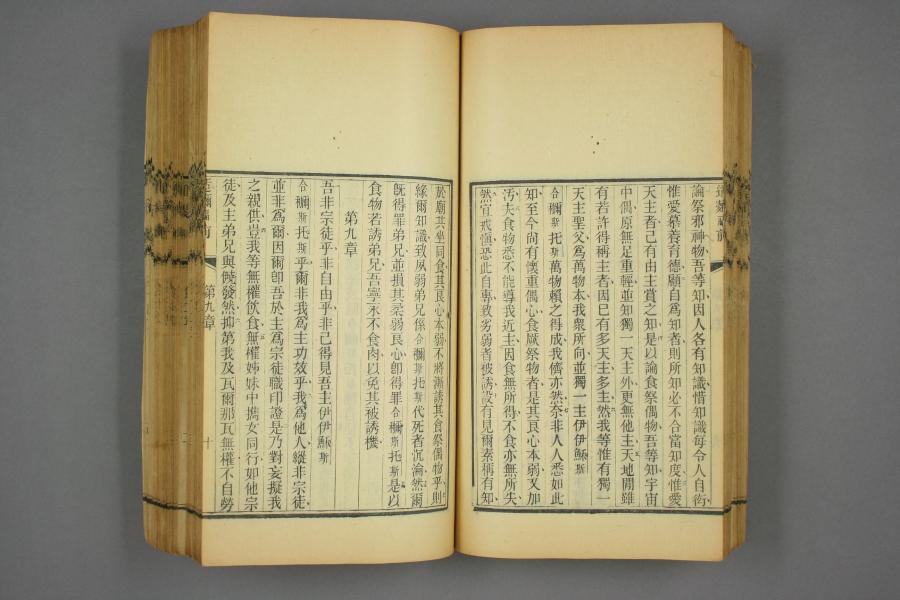 論祭邪神物吾等知因人各有知識惜知識每令人自衒
惟愛慕養育德願自為知者則所知必不合當知度惟愛
天主者己有由主賞之知是以論食祭偶物吾等知宇宙
中偶原無足重輕並知獨一天主外更無他主天地間雖
有若許得稱主者因已有多天主多主然我等惟有獨一
天主聖父為萬物本我衆所向並獨一主伊伊穌斯
合爾斯托斯萬物賴之得成我儕亦然奈非人人悉如此
知至今尚有懷重偶心食厭祭物者是其良心本弱又加
汚夫食物悉不能導我近主因食無所得不食亦無所失
然宜戒慎恐此自專致劣弱者被誘設有見爾素稱有知
於廟共坐同食其良心本弱不將漸誘其食祭偶物乎則
緣爾知識致夙弱弟兄係合爾斯托斯代死者沉淪然爾
旣得罪弟兄並損其柔弱良心卽得罪合爾斯托斯是以
食物若誘弟兄吾寧永不食肉以免其被誘機
第九章
吾非宗徒乎非自由乎非己得見吾主伊伊穌斯
合爾斯托斯乎爾非我為主功效乎我為他人縱非宗徒
並非為爾因爾卽吾於主為宗徒職印證是乃對妄擬我
之親供豈我等無權飲食無權姊妹中攜女同行如他宗
徒及主弟兄與
第我及瓦爾那瓦無權不自勞
前
第九章
十